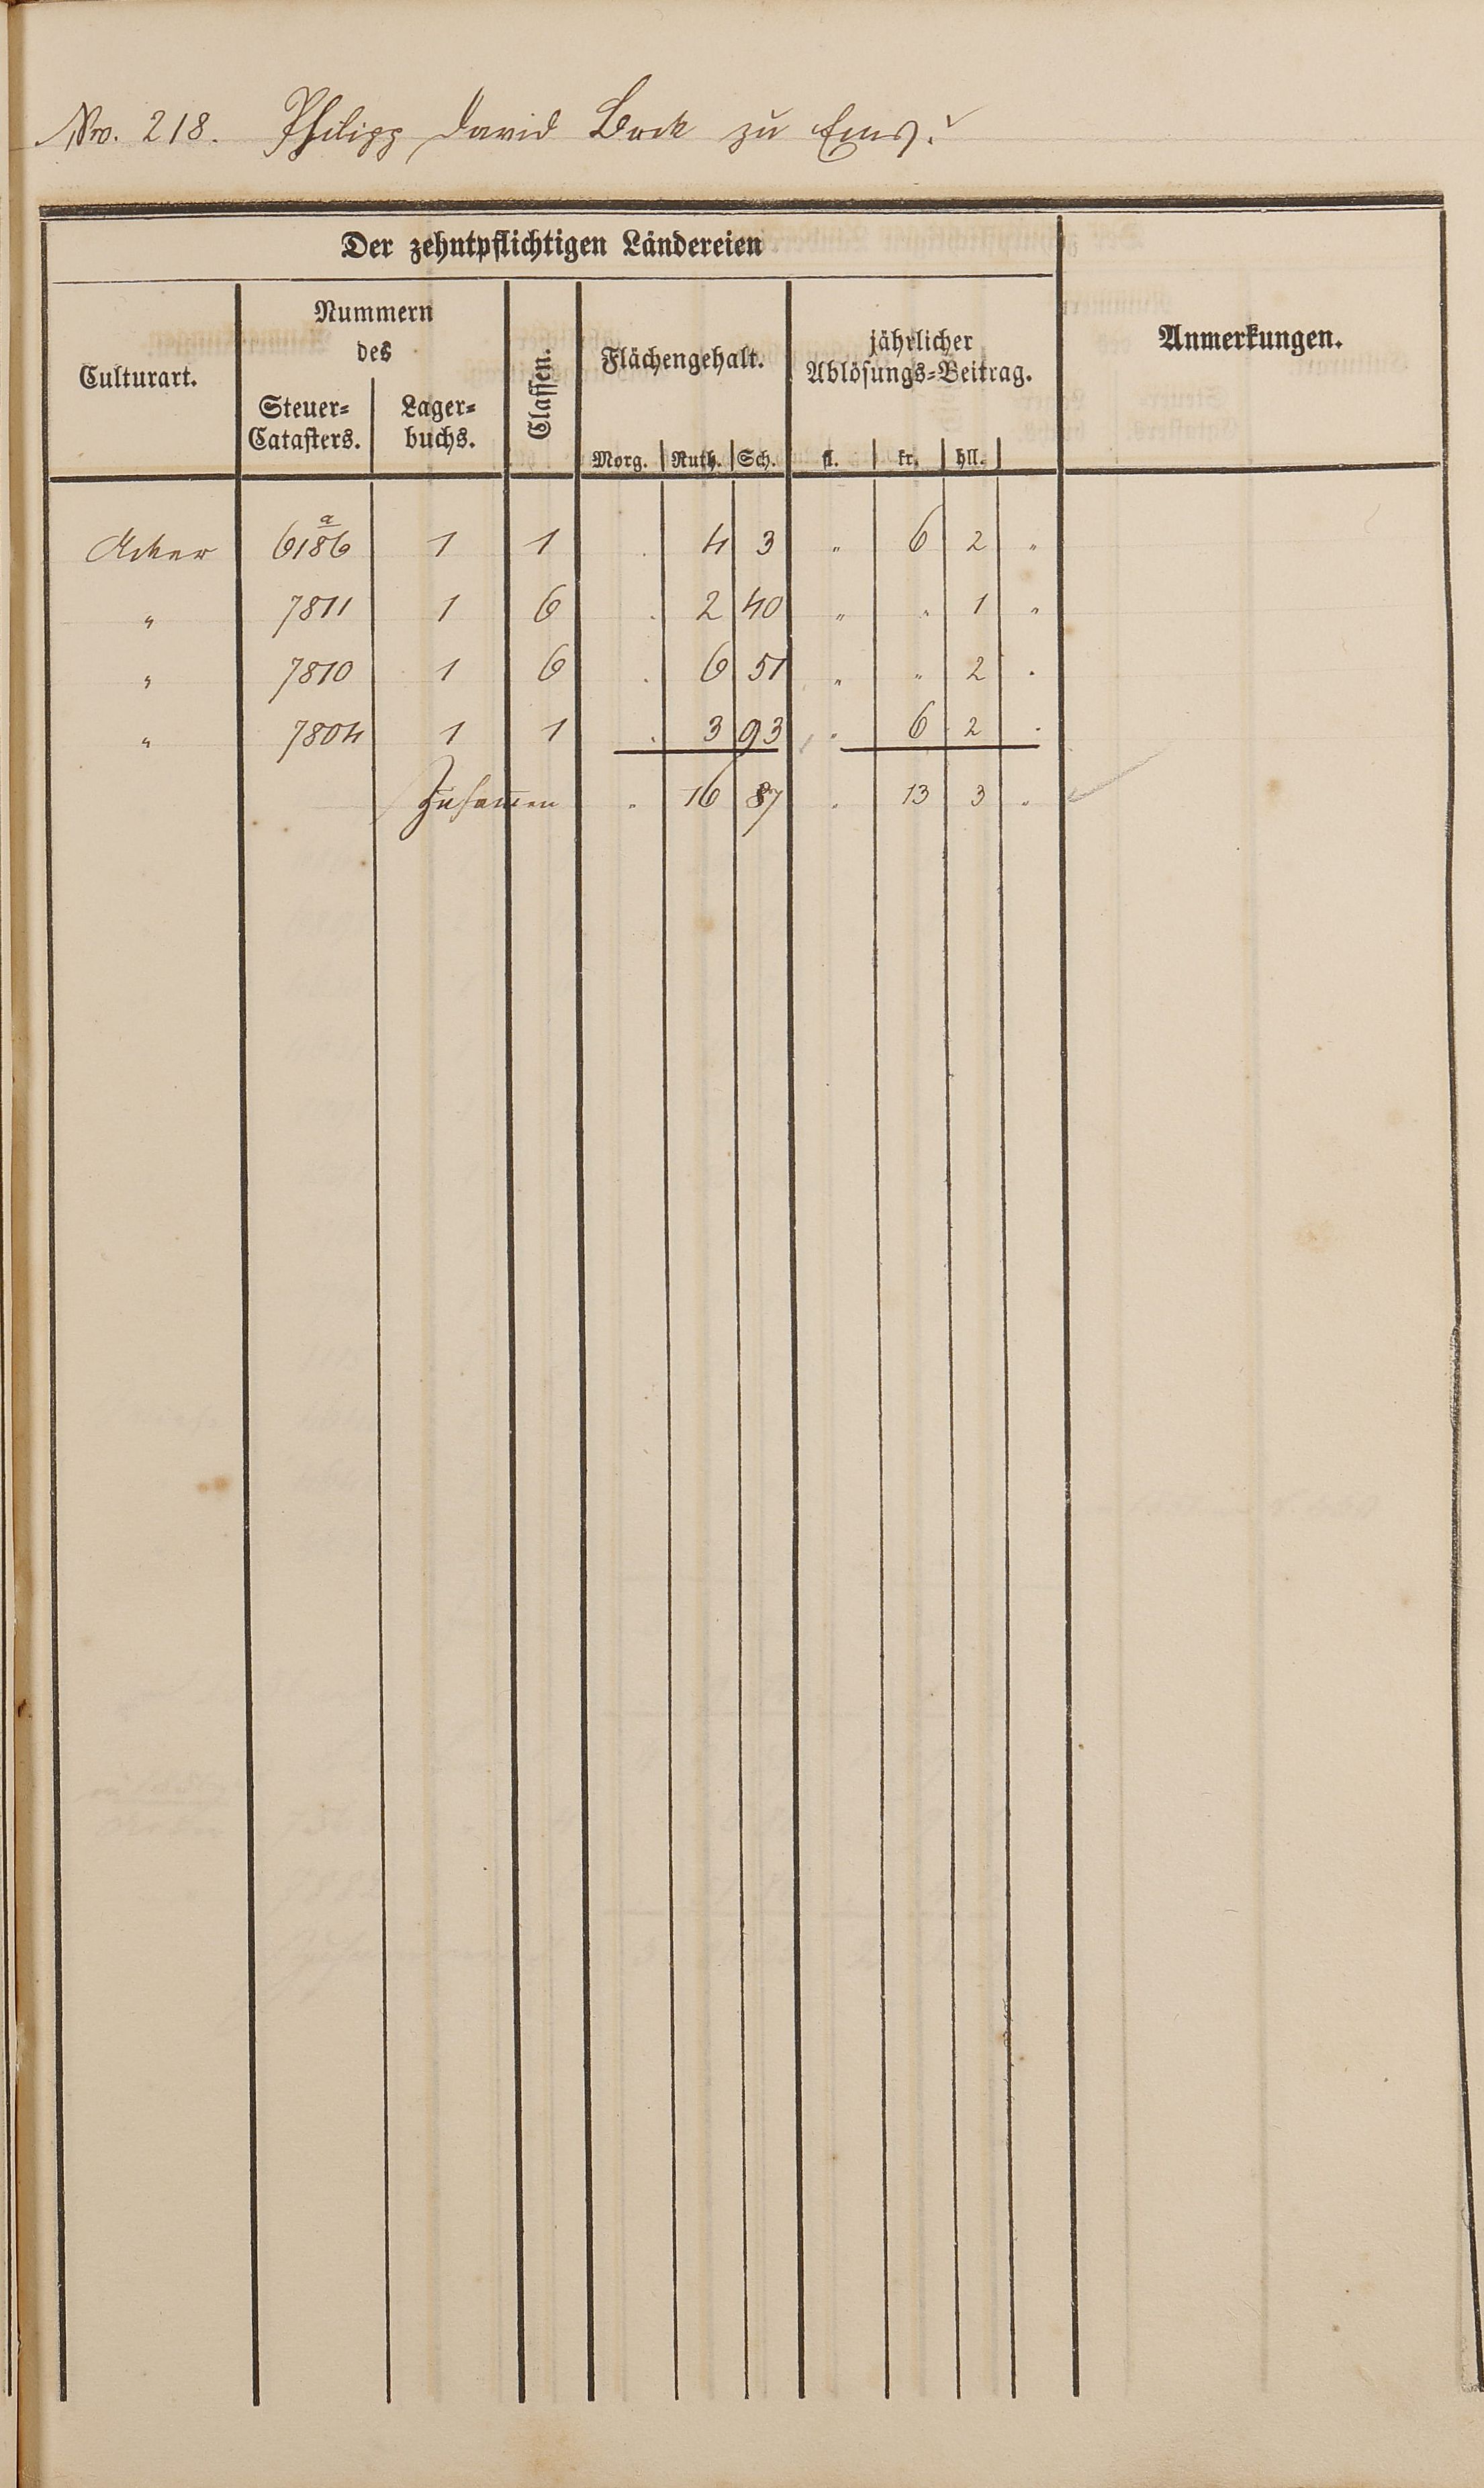 No. 218. Philipp David Bock zu Ems.
Der zehntpflichtigen Ländereien
Culturart.
Nummern
des
Steuer=
Catasters.
Lager=
buchs.
Classen.
Flächengehalt.
Morg. Ruth. Sch.
jährlicher
Ablösungs=Beitrag.
fl. kr. hll.
Anmerkungen.
Acker 6186 a 1 1 . 4 3 „ 6 2 „
„ 7811 1 6 . 2 40 „ „ 1 „
„ 7810 1 6 . 6 51 „ „ 2 .
„ 7804 1 1 . 3 93 . 6 2 .
Zusam̅en . 16 87 . 13 3 .